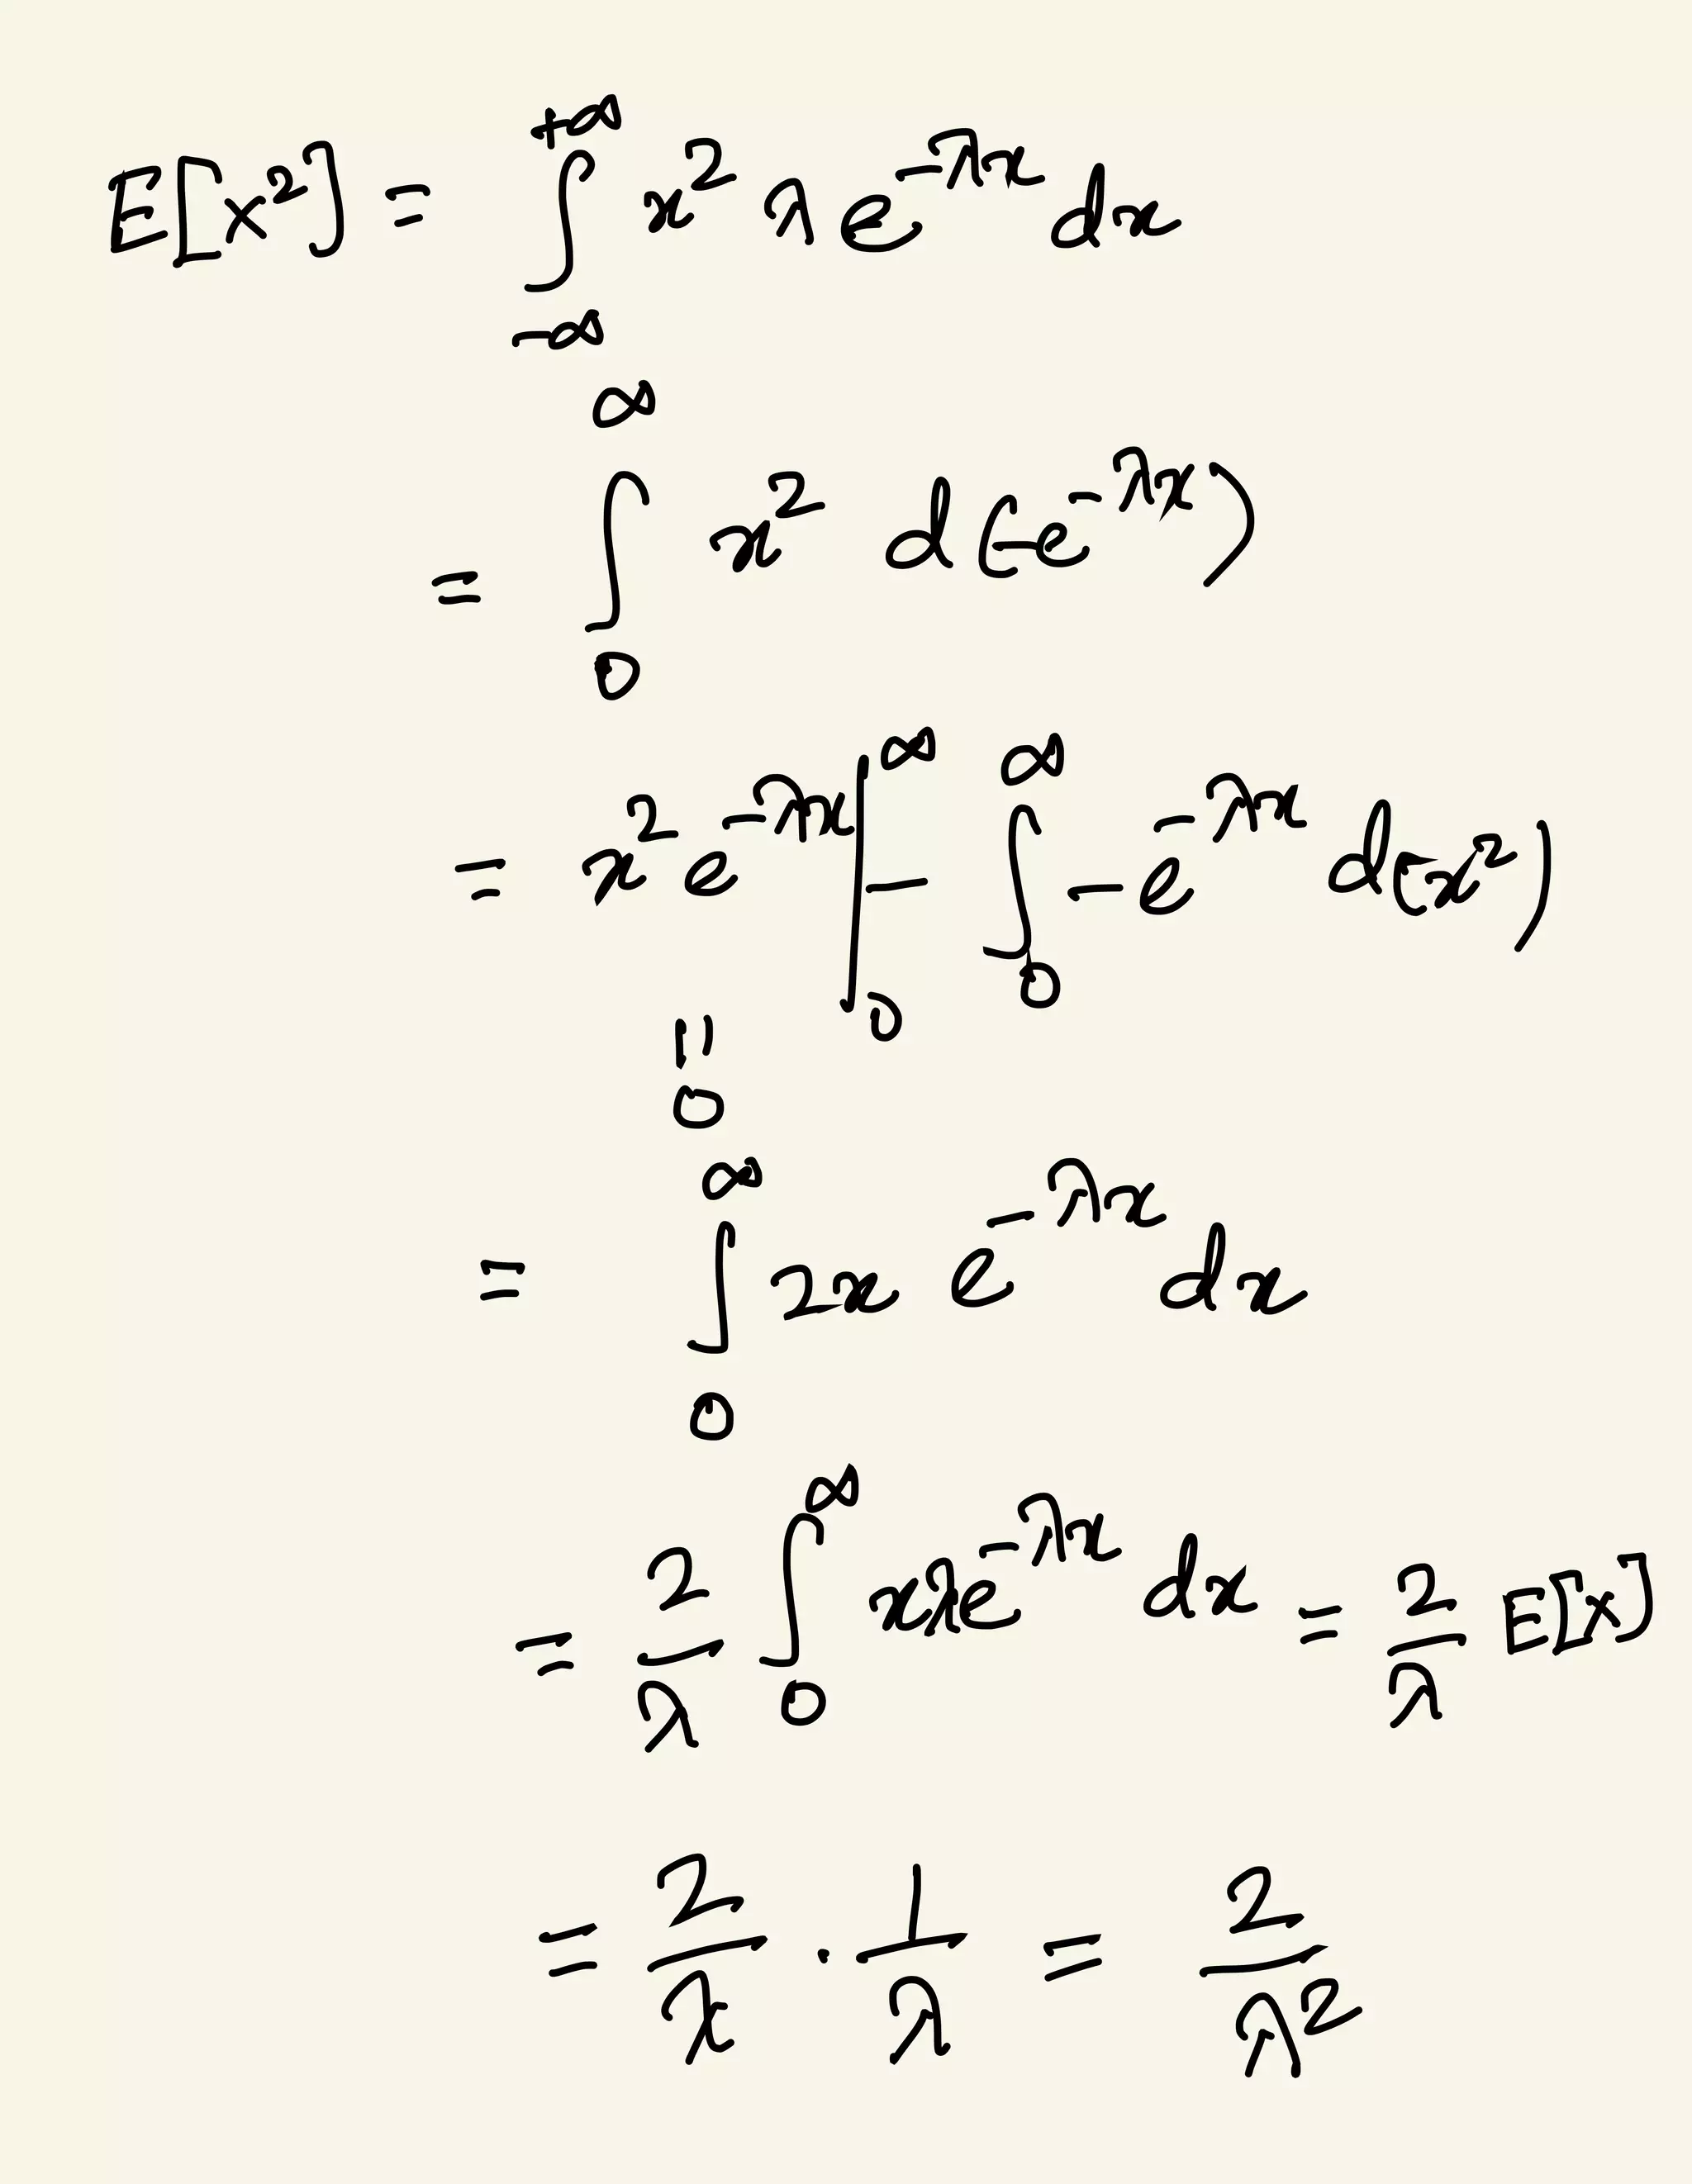 E[X²] = ∫_{-∞}^{+∞} x² λ e^{-λx} dx
= ∫_{0}^{∞} x² d(-e^{-λx})
= x² e^{-λx} |_{0}^{∞} - ∫_{0}^{∞} -e^{-λx} d(x²)
||
0
= ∫_{0}^{∞} 2x e^{-λx} dx
= 2/λ ∫_{0}^{∞} xλe^{-λx} dx = 2/λ E[X]
= 2/λ · 1/λ = 2/λ²